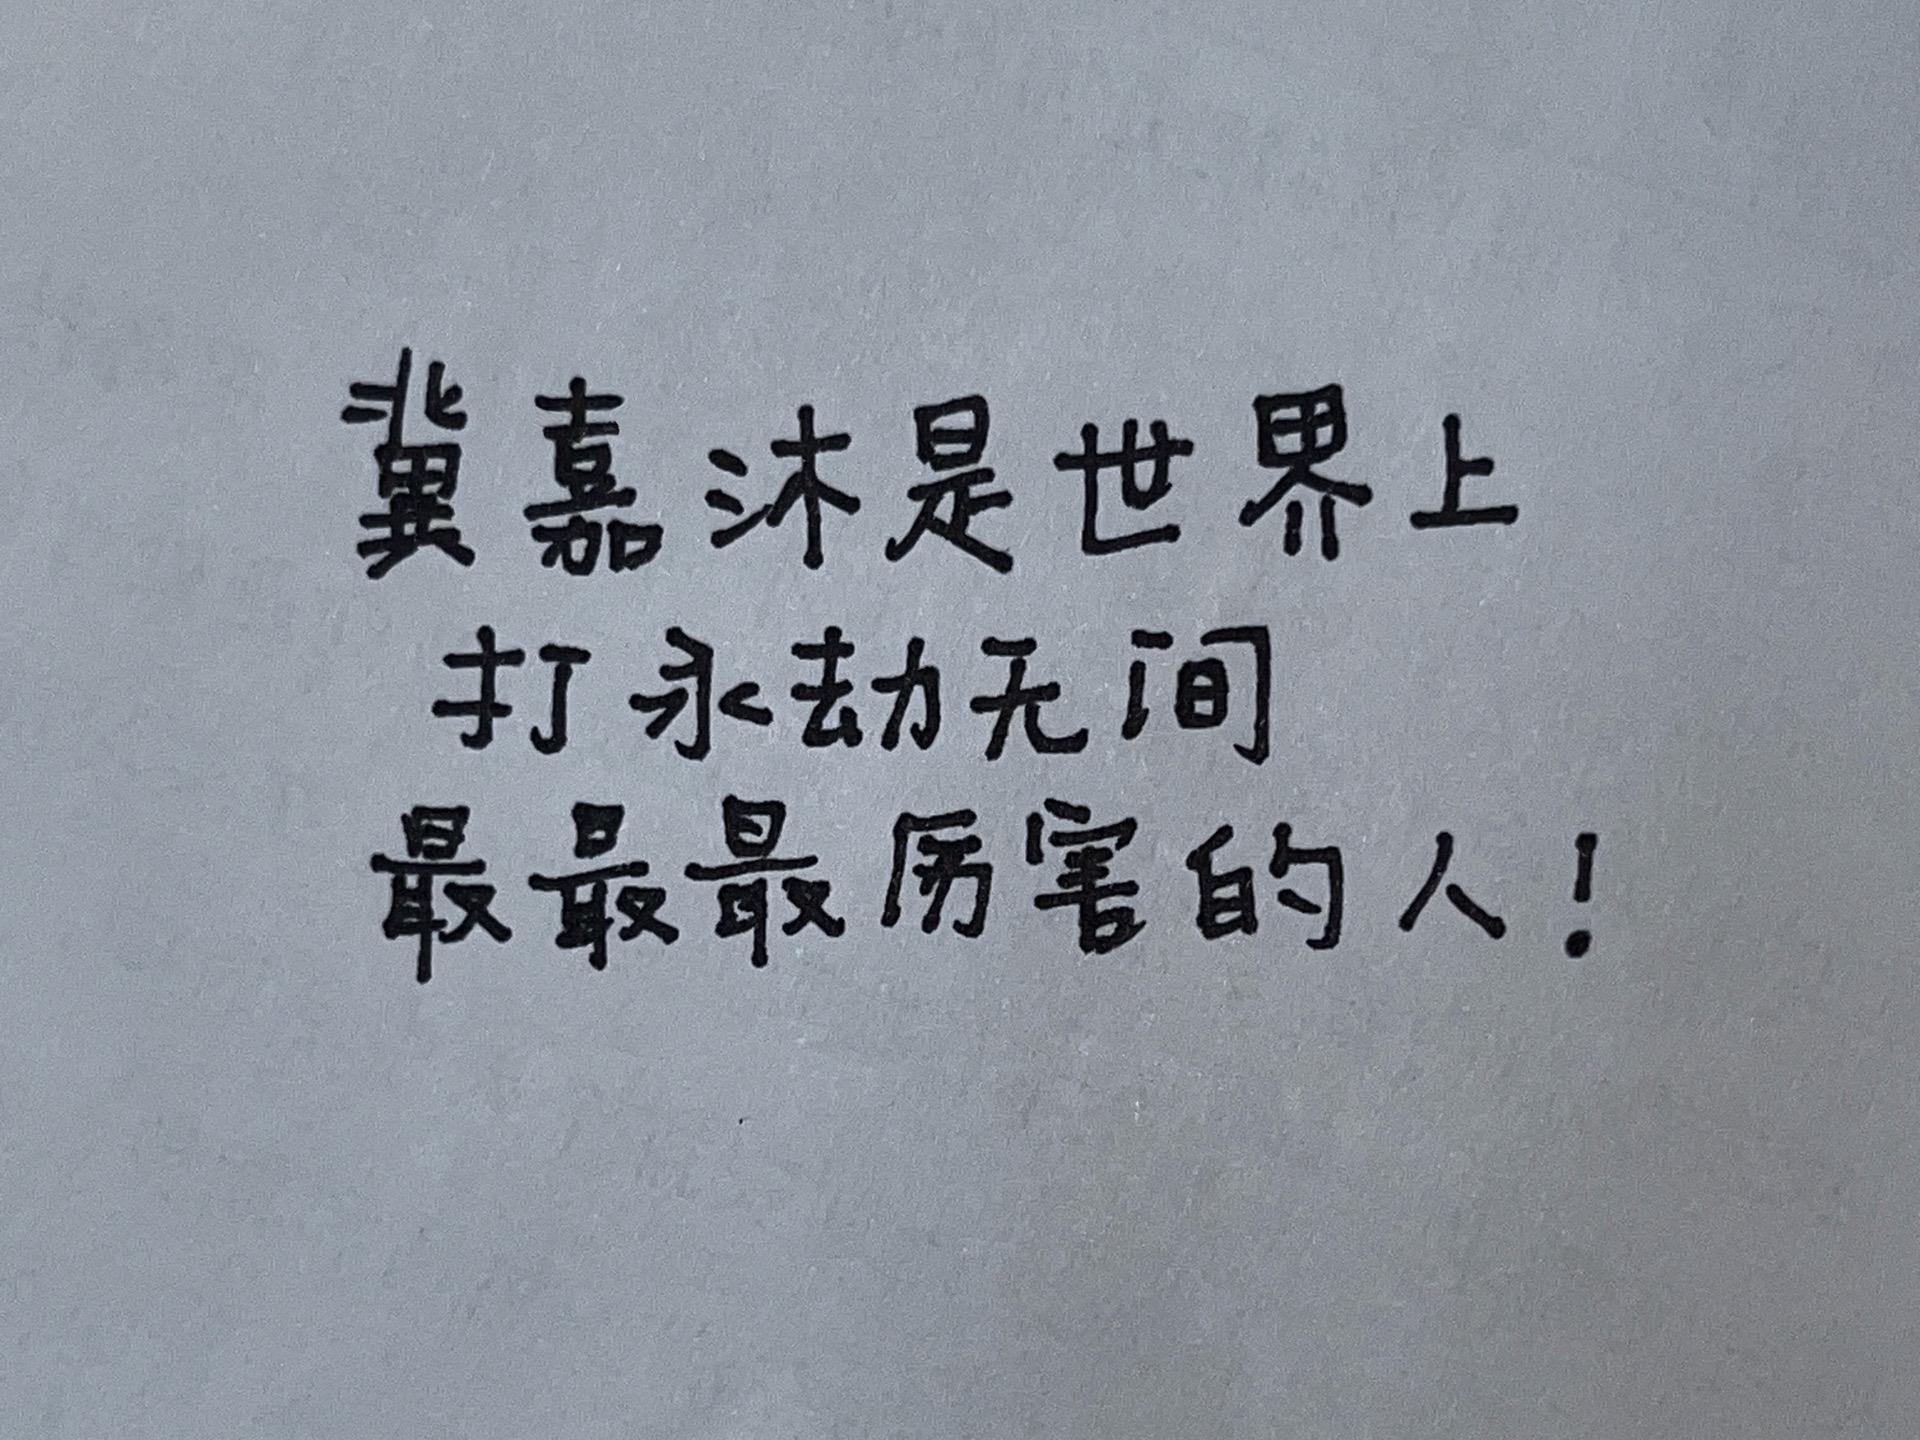 冀嘉沐是世界上
打永劫无间
最最最厉害的人！